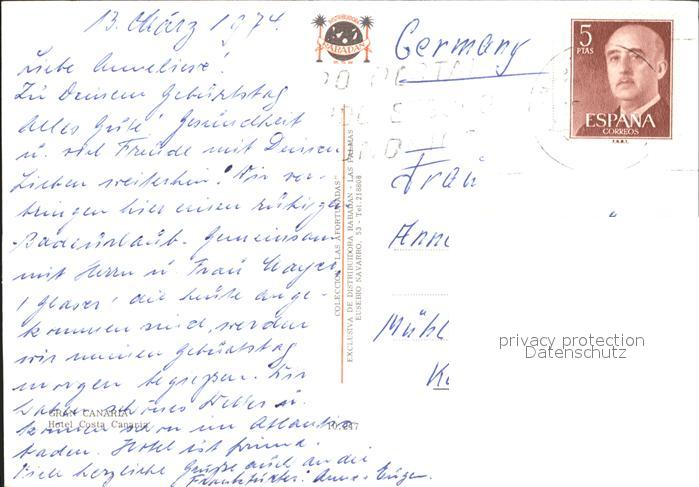 13. März 1974.
Liebe Anneliese!
Zu Deinem Geburtstag
alles Gute! Gesundheit
u. viel Freude mit Deinen
Lieben weiterhin! Wir ver-
bringen hier einen ruhigen
Badeurlaub. Gemeinsam
mit Herrn u Frau Mayer
(Glaser) die heute ange-
kommen sind, werden
wir meinen Geburtstag
morgen begießen. Wir
haben schönes Wetter u.
können schon im Atlantik
baden. Hotel ist prima.
Viele herzliche Grüße auch an die
Frankfurter. Anna u. Eugen.
GRAN CANARIA
Hotel Costa Canaria
10.247
DISTRIBUIDORA
RABADAN
COLECCION "LAS AFORTUNADAS"
EXCLUSIVA DE DISTRIBUIDORA RABADAN - LAS PALMAS
EUSEBIO NAVARRO, 53 - Tel. 218808
Germany
5
PTAS
ESPAÑA
CORREOS
F.N.M.T.
Frau
Anne
Mühl
privacy protection
Datenschutz